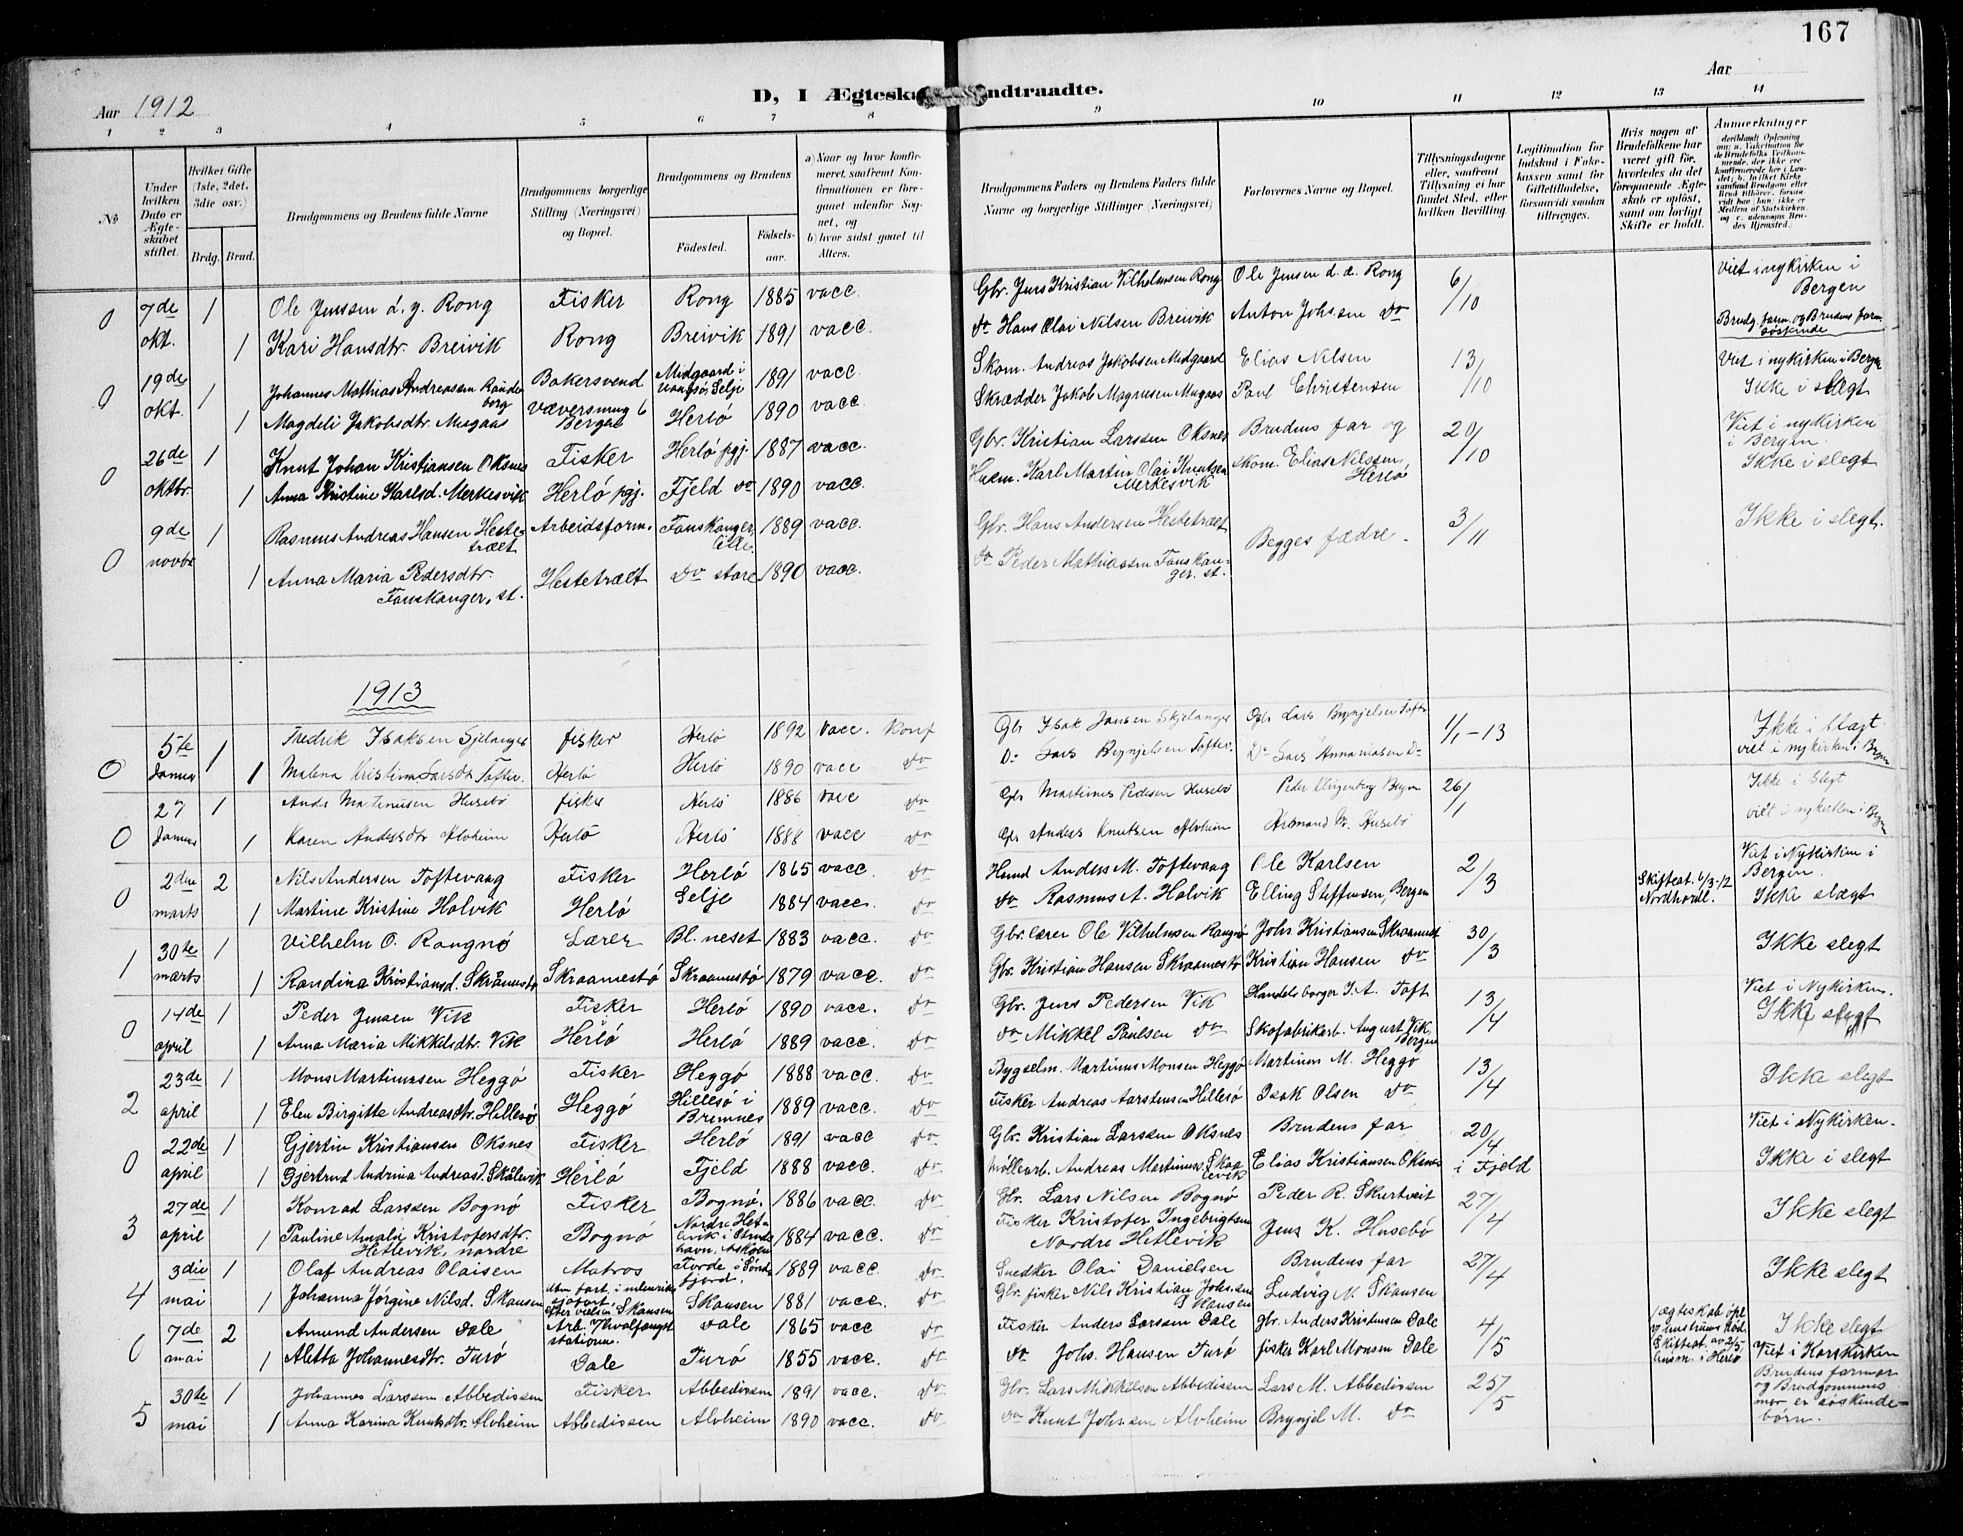 167
Aar 1912
D, I Ægteska ndtraadte.
Aar
1 2 3 4 5 6 7 8 9 10 11 12 13 14
No
Under hvilken Dato er Ægteskabet stiftet.
Hvilket Gifte (1ste, 2det, 3die osv.)
Brdg. Brud.
Brudgommens og Brudens fulde Navne
Brudgommens borgerlige Stilling (Næringsvei) og Bopæl.
Brudgommens og Brudens
Födested. Födselsaar.
a) Naar og hvor konfirmeret, saafremt Konfirmationen er foregaaet udenfor Sognet, og
b) hvor sidst gaaet til Alters.
Brudgommens Faders og Brudens Faders fulde Navne og borgerlige Stillinger (Næringsvei)
Forlovernes Navne og Bopæl.
Tillysningsdagene eller, saafremt Tillysning ei har fundet Sted, efter hvilken Bevilling.
Legitimation for Indskud i Enkekassen samt for Giftetilladelse, forsaavidt saadan tiltrænges.
Hvis nogen af Brudefolkene har været gift för, hvorledes da det foregaaende Ægteskab er oplöst, samt om lovligt Skifte er holdt.
Anmerkninger
0 7de okt. 1 Ole Jenssen d. y. Rong Fisker Rong 1885 vacc. Gbr. Jens Kristian Vilhelmsen Rong Ole Jensen d. æ. Rong 6/10 Viet i nykirken i Bergen
1 Kari Hansdtr. Breivik Rong Breivik 1891 vacc. do Hans Olai Nilsen Breivik Anton Johsen do Brudg. farm. og Brudens farm. søskinde
0 19de okt. 1 Johannes Mathias Andreassen Randeberg Bakersvend Midgaard i Vaagsö, Selje 1891 vacc. Skom. Andreas Jakobsen Midgaard Elias Nilsen 13/10 Viet i nykirken i Bergen
1 Magdeli Jakobsdtr. Mugaas Væversmug 6 Bergen Herlö 1890 vacc. Skrædder Jakob Magnusen Mugaas Paul Christensen Ikke i slegt
0 26de oktbr. 1 Knut Johan Kristiansen Oksnes Fisker Herlö pgj. 1887 vacc. Gbr. Kristian Larssen Oksnes Brudens far og 20/10 Viet i nykirken i Bergen.
1 Anna Kristine Karlsd. Merkesvik Herlö pgj. Fjeld do 1890 vacc. Husm. Karl Martin Olai Knutsen Merkesvik skom. Elias Nilssen, Herlö Ikke i slegt
0 9de novbr 1 Rasmus Andreas Hansen Hestetræet Arbeidsform. Fauskanger, lille 1889 vacc. Gbr. Hans Andersen Hestetræet Begges fædre. 3/11 Ikke i slegt.
1 Anna Maria Pedersdtr. Fauskanger, st. Hestetræet do store 1890 vacc. do Peder Mathiassen Fauskanger. st.
1913
0 5te Januar 1 Fredrik Isaksen Sjelanger fisker Herlö 1892 vacc. Konf Gbr Isak Jansen Skjelanger Gbr Lars Brynjelsen Tofte 1/1-13 Ikke i Slægt
1 Malena Kristina Larsdtr Tofte. Herlö Herlö 1890 vacc do Do Lars Brynjelsen Tofte. Do Lars Annaniasen Do viet i nykirken i Bergen
0 27 Januar 1 Martinusen Husebö fisker Herlö 1886 vacc do Gbr Martinus Pedersen Husebö Peder Bergen 26/1 Ikke i Slegt
1 Karen Andersdtr Alvheim Herlö Herlö 1888 vacc do Gbr Anders Knutsen Alvheim M. Husebö viet i nykirken i Bergen
0 2den marts 2 Nils Andersen Toftevaag Fisker Herlö 1865 vacc. do Husmd Anders M. Toftevaag Ole Karlsen 2/3 Skifteat. 6/3-12 Nordhordl. Viet i Nykirken i Bergen.
1 Martine Kristine Halvik Herlö Selje 1884 vacc. do do Rasmus A. Halvik Elling Steffensen, Bergen Ikke slægt
1 30te marts 1 Vilhelm O. Rongnö Lærer Bl. neset 1883 vacc. do Gbr. lærer Ole Vilhelmsen Rongnö Johs Kristiansen Skraamest 30/3 Ikke slegt
1 Randina Kristiansd. Skråmestö Skraamestö Skraamestö 1879 vacc. do Gbr. Kristian Hansen Skraamestö Kristian Hansen do
0 14de april 1 Peder Jensen Vik Fisker Herlö 1890 vacc. do Gbr. Jens Pedersen Vik Handelsborger J. A. Toft 13/4 Viet i Nykirken.
1 Anna Maria Mikkelsdtr. Vik Herlö Herlö 1889 vacc. do do Mikkel Paulsen do Skofabrikarb. August Vik, Bergen Ikke slegt
2 23de april 1 Mons Martinussen Heggö Fisker Heggö 1888 vacc. do Bygselm. Martinus Monsen Heggö Martinus M. Heggö 13/4 Ikke slegt
1 Elen Birgitte Andreasdtr. Hillesö Heggö Hillesö i Bremnes 1889 vacc. do Fisker Andreas Aarstensen Hillesö Isak Olsen do
0 22de april 1 Gjertin Kristiansen Oksnes Fisker Herlö 1891 vacc do Gbr. Kristian Larssen Oksnes Brudens far 20/4 Viet i Nykirken.
1 Gjertrud Andrina Andreasd. Skålevik Herlö Fjeld 1888 vacc. do Möllearb. Andreas Martinuss. Skaalevik Elias Kristiansen Oksnes i Fjeld Ikke i slegt
3 27de april 1 Konrad Larssen Bognö Fisker Bognö. 1886 vacc. do Gbr. Lars Nilsen Bognö Peder R. Skurtveit 27/4 Ikke slegt
1 Pauline Amalie Kristofersdtr. Hetlevik, nordre Bognö Nordre Hetlevik i Strudshavn, Askøen 1884 vacc. do Fisker Kristofer Ingebrigtsen Nordre Hetlevik Jens K. Husebö
4 3die mai 1 Olaf Andreas Olaisen Matros Förde i Söndfjord. 1889 vacc. do Snedker Olai Danielsen Brudens far 27/4 Ikke slegt
1 Johanna Jörgine Nilsd. Skansen Skansen 1881 vacc. do Gbr. fisker Nils Kristian Johnsen Skansen Ludvig M. Skansen
0 7de mai 2 Amund Andersen Dale Arb. Hvalfangststationen. Dale 1865 vacc do Fisker Anders Larssen Dale Gbr. Anders Kristensen Dale 4/5 Ikke slegt
1 Aletta Johannesdtr. Turö Dale Turö 1855 vacc. do do Johs. Hansen Turö fisker Karl Monsen Dale Viet i Korskirken
5 30te mai 1 Johannes Larssen Abbedissen Fisker Abbedissen 1891 vacc. do Gbr. Lars Mikkelsen Abbedissen Lars M. Abbedissen 25/5 Brudens farmor og Brudgommens mor er søskendebörn.
1 Anna Karina Knutsdtr. Alvheim Abbedissen Alvheim 1890 vacc. do do Knut Johssen Alvheim Brynjel M. do